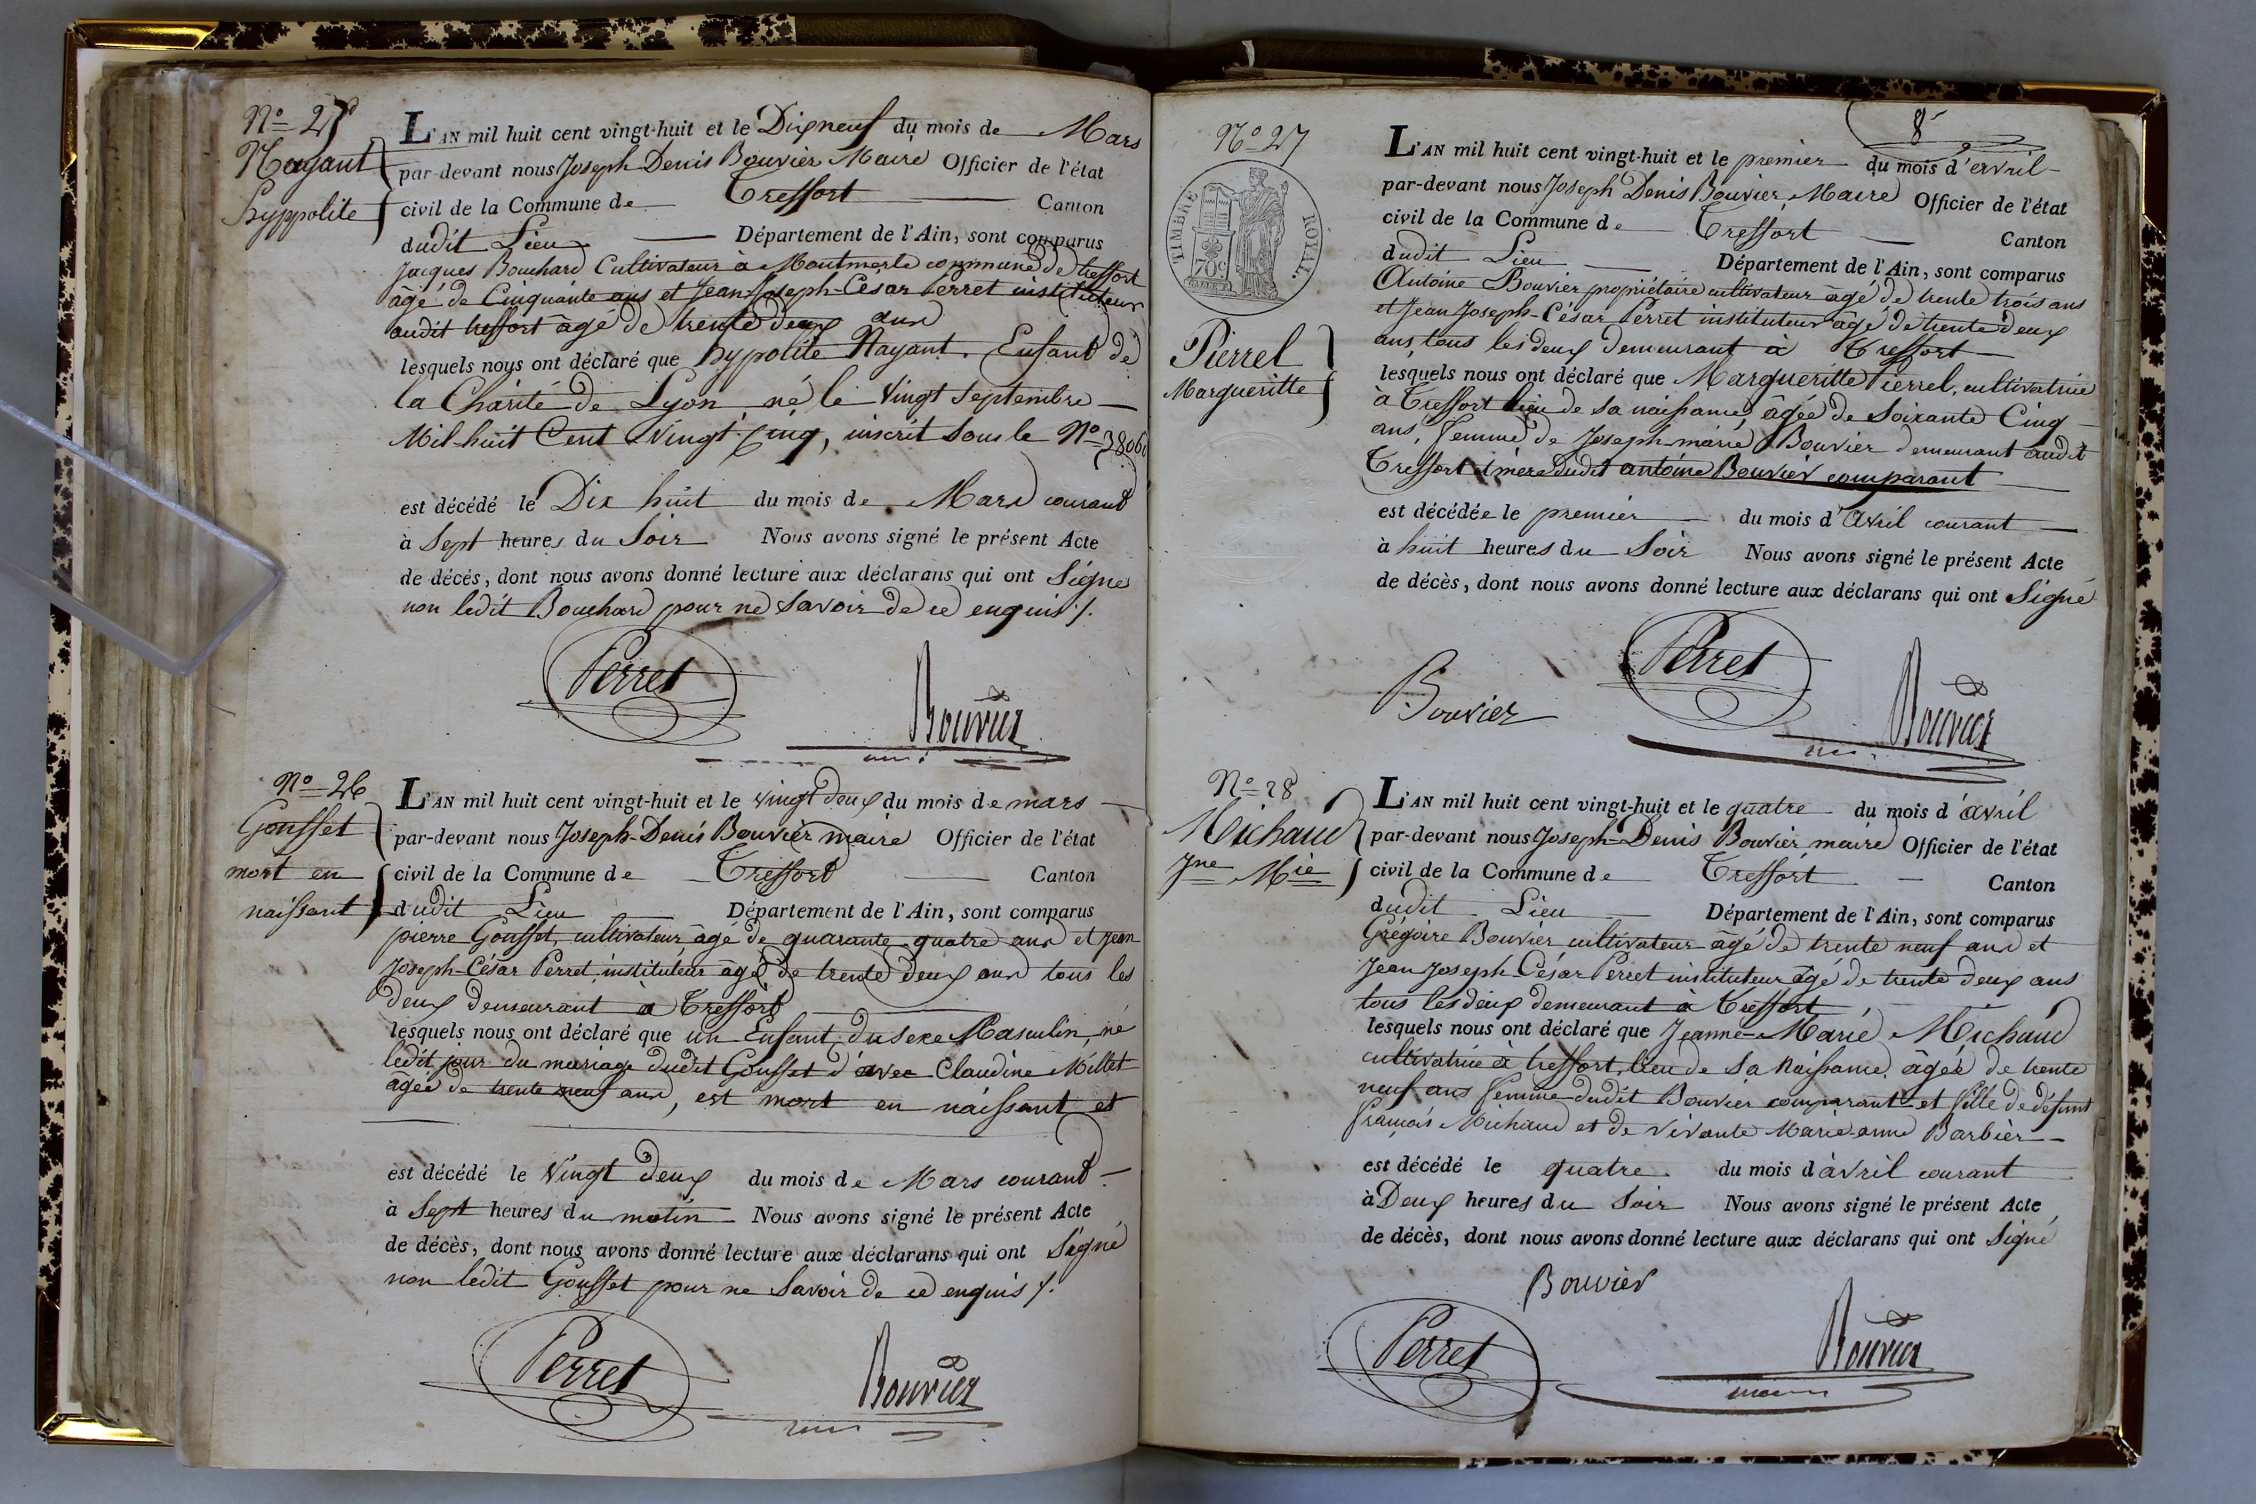 N° 25
Nayant
hyppolite
L'AN mil huit cent vingt-huit et le Dixneuf du mois de Mars
par-devant nous Joseph-Denis Bouvier Maire Officier de l'état
civil de la Commune de Treffort Canton
dudit Lieu Département de l'Ain, sont comparus
Jacques Bouchard Cultivateur à Montmerle commune de treffort
âgé de Cinquante ans et Jean-Joseph-César Perret instituteur
audit treffort âgé de trente deux ans
lesquels nous ont déclaré que hypolite Nayant. Enfant de
la Charité de Lyon né le vingt septembre
Mil-huit Cent Vingt Cinq, inscrit sous le N°
est décédé le Dix huit du mois de Mars courant
à Sept heures du Soir Nous avons signé le présent Acte
de décès, dont nous avons donné lecture aux déclarans qui ont Signé
non ledit Bouchard pour ne Savoir de ce enquis /.
Perret
Bouvier
N° 26
Gousset
mort en
naissant
L'AN mil huit cent vingt-huit et le vingt deux du mois de mars
par-devant nous Joseph-Denis Bouvier maire Officier de l'état
civil de la Commune de Treffort Canton
dudit Lieu Département de l'Ain, sont comparus
pierre Gousset, cultivateur âgé de quarante-quatre ans et Jean
Joseph-César Perret instituteur âgé de trente deux ans tous les
deux demeurant à Treffort
lesquels nous ont déclaré que un Enfant du sexe Masculin, né
ledit jour du mariage dudit Gousset d'avec Claudine Millet
âgée de trente neuf ans, est mort en naissant et
est décédé le Vingt deux du mois de Mars courant
à Sept heures du matin Nous avons signé le présent Acte
de décès, dont nous avons donné lecture aux déclarans qui ont Signé
non ledit Gousset pour ne Savoir de ce enquis /.
Perret
Bouvier
8
N° 27
TIMBRE ROYAL.
70c
Pierrel
Margueritte
L'AN mil huit cent vingt-huit et le premier du mois d'avril
par-devant nous Joseph Denis Bouvier, Maire Officier de l'état
civil de la Commune de Treffort Canton
dudit Lieu Département de l'Ain, sont comparus
Antoine Bouvier propriétaire cultivateur âgé de trente trois ans
et Jean Joseph-César Perret instituteur âgé de trente deux
ans, tous les deux demeurant à Treffort
lesquels nous ont déclaré que Margueritte Pierrel, cultivatrice
à Treffort lieu de sa naissance, âgée de Soixante Cinq
ans, femme de Joseph-marie Bouvier demeurant audit
Treffort mère dudit antoine Bouvier comparant
est décédée le premier du mois d'Avril courant
à huit heures du Soir Nous avons signé le présent Acte
de décès, dont nous avons donné lecture aux déclarans qui ont Signé
Perret
Bouvier
Bouvier
N° 28
Michaud
Jne Mie
L'AN mil huit cent vingt-huit et le quatre du mois d'avril
par-devant nous Joseph-Denis Bouvier maire Officier de l'état
civil de la Commune de Treffort Canton
dudit Lieu Département de l'Ain, sont comparus
Grégoire Bouvier cultivateur âgé de trente neuf ans et
Jean Joseph-César Perret instituteur âgé de trente deux ans
tous les deux demeurant à Treffort
lesquels nous ont déclaré que Jeanne-Marie Michaud
cultivatrice à treffort, lieu de Sa Naissance. âgée de trente
neuf ans femme dudit Bouvier comparant et fille de défunt
françois Michaud et de vivante Marie-anne Barbier
est décédé le quatre du mois d'avril courant
à Deux heures du Soir Nous avons signé le présent Acte
de décès, dont nous avons donné lecture aux déclarans qui ont Signé
Bouvier
Perret
Bouvier